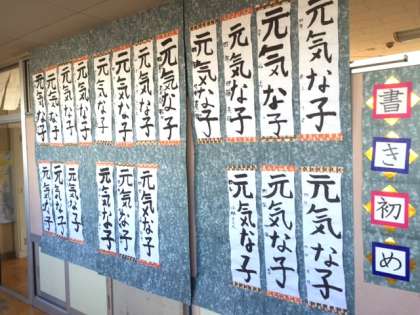 書き初め
元気な子
元気な子
元気な子
元気な子
元気な子
元気な子
元気な子
元気な子
元気な子
元気な子
元気な子
元気な子
元気な子
元気な子
元気な子
元気な子
元気な子
元気な子
元気な子
元気な子
元気な子